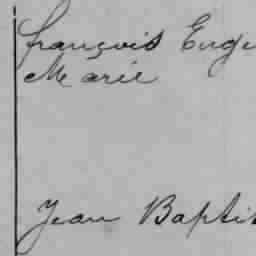 françois Euge
Marie
Jean Baptis